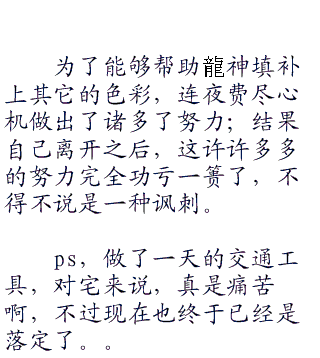 为了能够帮助龍神填补
上其它的色彩，连夜费尽心
机做出了诸多了努力；结果
自己离开之后，这许许多多
的努力完全功亏一篑了，不
得不说是一种讽刺。
ps，做了一天的交通工
具，对宅来说，真是痛苦
啊，不过现在也终于已经是
落定了。。